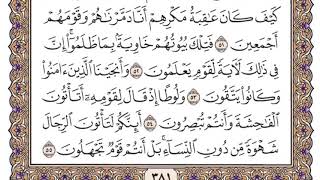 كَيْفَ كَانَ عَٰقِبَةُ مَكْرِهِمْ أَنَّا دَمَّرْنَٰهُمْ وَقَوْمَهُمْ
أَجْمَعِينَ ٥١ فَتِلْكَ بُيُوتُهُمْ خَاوِيَةًۢ بِمَا ظَلَمُوٓا۟ إِنَّ
فِى ذَٰلِكَ لَءَايَةً لِّقَوْمٍ يَعْلَمُونَ ٥٢ وَأَنجَيْنَا ٱلَّذِينَ ءَامَنُوا۟
وَكَانُوا۟ يَتَّقُونَ ٥٣ وَلُوطًا إِذْ قَالَ لِقَوْمِهِۦٓ أَتَأْتُونَ
ٱلْفَٰحِشَةَ وَأَنتُمْ تُبْصِرُونَ ٥٤ أَئِنَّكُمْ لَتَأْتُونَ ٱلرِّجَالَ
شَهْوَةً مِّن دُونِ ٱلنِّسَآءِ بَلْ أَنتُمْ قَوْمٌ تَجْهَلُونَ ٥٥
٣٨١